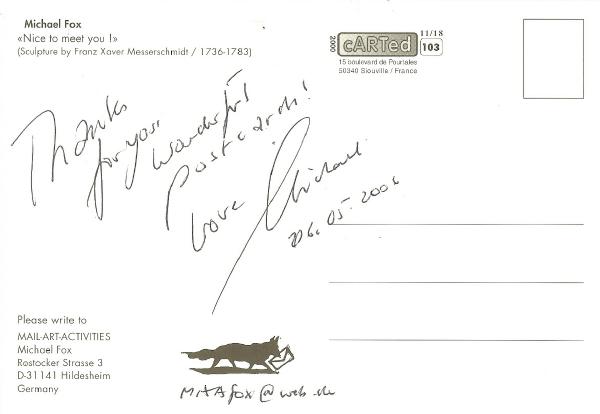 Michael Fox
«Nice to meet you !»
(Sculpture by Franz Xaver Messerschmidt / 1736-1783)
2000
cARTed
11/18
103
15 boulevard de Pourtales
50340 Siouville / France
Thanks
for your
wonderful
Postcards!
Love
Michael
26.05.2006
Please write to
MAIL-ART-ACTIVITIES
Michael Fox
Rostocker Strasse 3
D-31141 Hildesheim
Germany
MAAfox@web.de